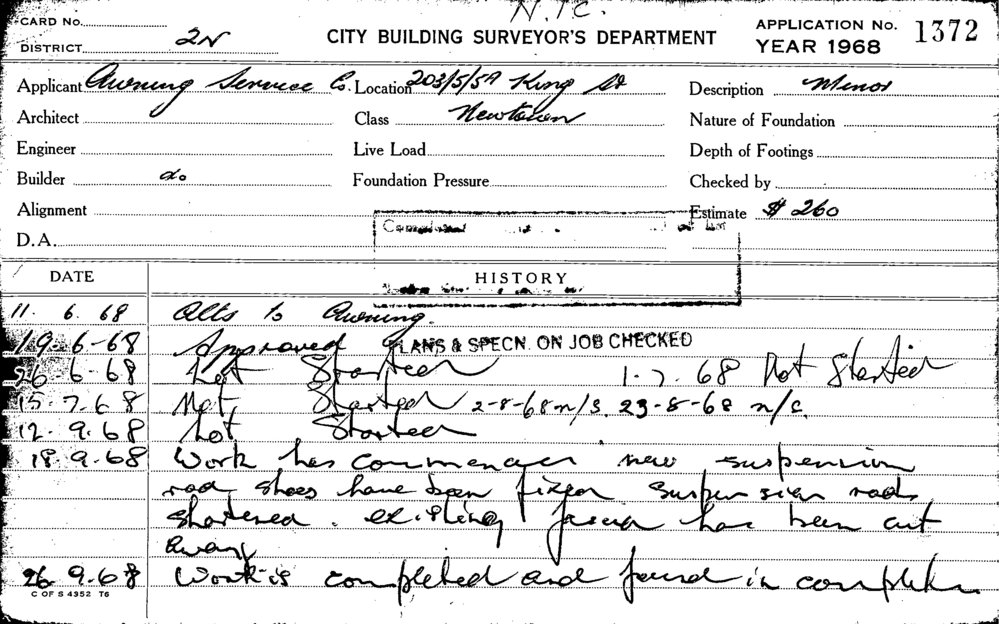 N.I.C.
CARD No.
DISTRICT 2N
CITY BUILDING SURVEYOR'S DEPARTMENT
APPLICATION No. 1372
YEAR 1968
Applicant Awning Service Co. Location 203/5/59 King St Description Minor
Architect Class Newtown Nature of Foundation
Engineer Live Load Depth of Footings
Builder do Foundation Pressure Checked by
Alignment Estimate $ 260
D.A.
DATE HISTORY
11. 6. 68 Alts to Awning.
19-6-68 Approved PLANS & SPECN. ON JOB CHECKED
26-6-68 Not Started 1-7.68 Not Started
15-7-68 Not Started 2-8-68 n/s. 23-8-68 n/s.
12.9.68 Not Started
18.9.68 Work has commenced new suspension
rod shoes have been fixed suspension rods
shortened. existing fascia has been cut
away
26.9.68 Work is completed and found in completion
C OF S 4352 T6